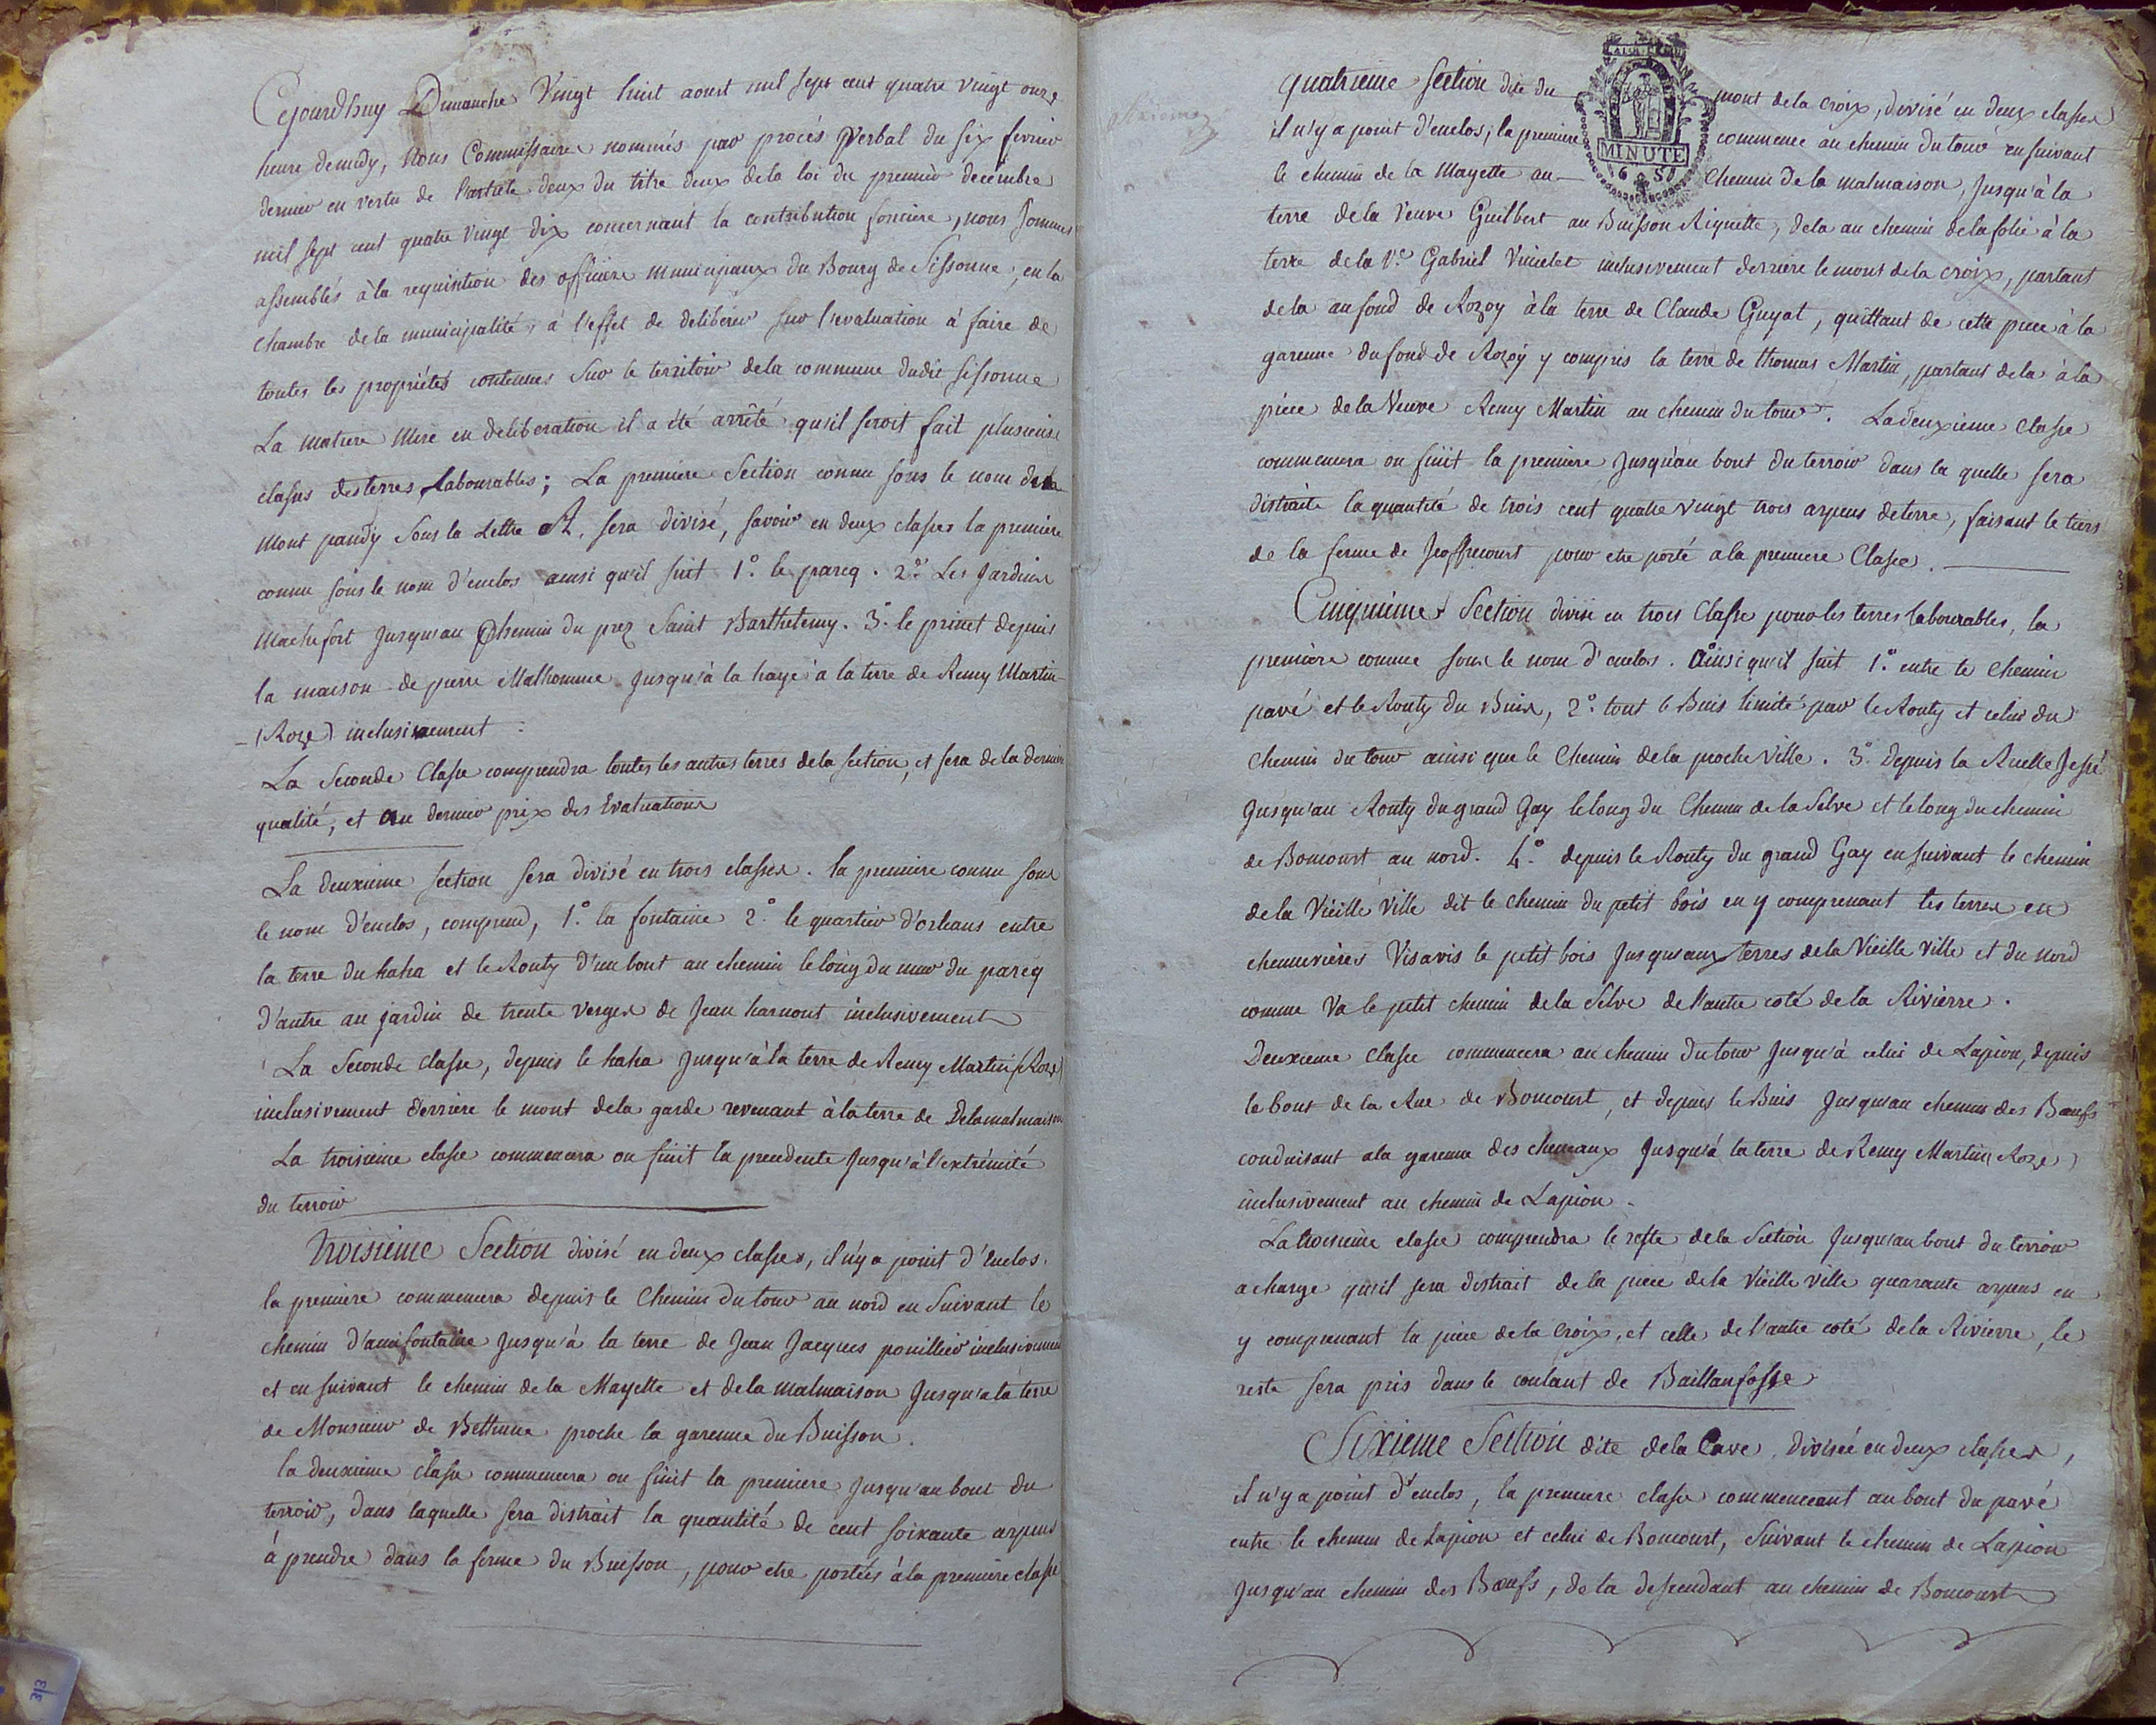 Cejourdhuy Dimanche Vingt huit aoust mil sept cent quatre vingt onze
heure demidy, Nous Commissaires nommés par procés Verbal du six fevrier
dernier en vertu de l'article deux du titre deux dela loi du premier decembre
mil sept cent quatre vingt dix concernant la contribution fonciere, nous sommes
assemblés à la requisition des officiers municipaux du Bourg de Sissonne, en la
chambre dela municipalité, à l'effet de deliberer sur l'evaluation à faire de
toutes les propriétés contenues sur le territoir dela commune dudit sissonne
La matiere mise en deliberation il a été arrêté qu'il seroit fait plusieurs
classes des terres labourables; La premiere Section connu sous le nom de
mont pandy sous la Lettre A. sera divisé, savoir en deux classes la premiere
connu sous le nom d'enclos ainsi qu'il suit 1°. le parcq. 2°. Les Jardins
machefort Jusqu'au Chemin du prez Saint Barthelemy. 3°. le depuis
la maison de pierre Malhomme Jusqu'à la haye à la terre de Remy Martin
(Roze) inclusivement
La Seconde Classe comprendra toutes les autres terres dela section, et sera de la derniere
qualité, et au dernier prix des Evaluations
La deuxieme section sera divisé en trois classes. la premiere connu sous
le nom d'enclos, comprend, 1°. la fontaine 2°. le quartier d'orleans entre
la terre du haha et le Routy d'un bout au chemin le long du mur du parcq
d'autre au jardin de trente verges de Jean harnout inclusivement
La Seconde classe, depuis le haha Jusqu'à la terre de Remy Martin (Roze)
inclusivement derriere le mont dela garde revenant à la terre de Delamalmaison
La troisieme classe commencera ou finit la precedente Jusqu'à l'extrémité
du terroir
Troisieme Section divisé en deux classes, il n'y a point d'Enclos.
la premiere commencera depuis le Chemin du tour au nord en Suivant le
chemin d'amifontaine Jusqu'à la terre de Jean Jacques pouillier inclusivement
et en suivant le chemin de la Mayette et dela malmaison Jusqu'a la terre
de Monsieur de Bethune proche la garenne du Buisson.
la deuxieme classe commencera ou finit la premiere Jusqu'au bout du
terroir, dans laquelle sera distrait la quantité de cent soixante arpens
à prendre dans la ferme du Buisson, pour etre portées à la premiere classe
quatrieme section dite du mont dela croix, divisé en deux classes
MINUTE
il n'y a point d'enclos; la premiere commence au chemin du tour en suivant
le chemin de la Mayette au chemin de la malmaison, Jusqu'à la
terre dela Veuve Guilbert au Buisson Riquette, dela au chemin dela folie à la
terre dela Ve. Gabriel Vincelet inclusivement derriere le mont dela croix, partant
dela au fond de Rozoy à la terre de Claude Guyat, quittant de cette piece à la
garenne du fond de Rozoy y compris la terre de thomas Martin, partant dela à la
piece dela Veuve Remy Martin au chemin du tour. La deuxieme classe
commencera ou finit la premiere Jusqu'au bout du terroir dans la quelle sera
distraite la quantité de trois cent quatre vingt trois arpens de terre, faisant le tiers
de la ferme de Jeoffrecourt pour etre porté a la premiere Classe.
Cinquieme Section divisé en trois Classe pour les terres labourables, la
premiere connue sous le nom d'enclos. Ainsi qu'il suit 1°. entre le chemin
pavé et le Routy du Buis, 2°. tout le Buis limité par le Routy et celui du
chemin du tour ainsi que le Chemin dela proche Ville. 3°. Depuis la Ruelle Jessé
Jusqu'au Routy du grand Gay le long du Chemin de la Selve et le long du chemin
de Boncourt au nord. 4°. depuis le Routy du grand Gay en suivant le chemin
dela Vieille Ville dit le chemin du petit bois en y comprenant les terres en
chenevieres Visavis le petit bois Jusqu'aux terres dela Vieille ville et du nord
comme Va le petit chemin dela Selve de l'autre coté dela Rivierre.
Deuxieme classe commencera au chemin du tour Jusqu'à celui de Lapion, depuis
le bout de la Rue de Boncourt, et depuis le Buis Jusqu'au chemin des Bœufs
conduisant ala garenne des chevaux Jusqu'à la terre de Remy Martin (Roze)
inclusivement au chemin de Lapion.
La troisieme classe comprendra le reste dela Section Jusqu'au bout du terroir
a charge qu'il sera distrait de la piece dela Vieille ville quarante arpens en
y comprenant la piece dela croix, et celle de l'autre coté dela Rivierre, le
reste sera pris dans le coulant de Baillanfosse
Sixieme Section dite dela Cave, divisée en deux classes,
il n'y a point d'enclos, la premiere classe commenceant au bout du pavé
entre le chemin de Lapion et celui de Boncourt, suivant le chemin de Lapion
Jusqu'au chemin des Bœufs, de la descendant au chemin de Boncourt